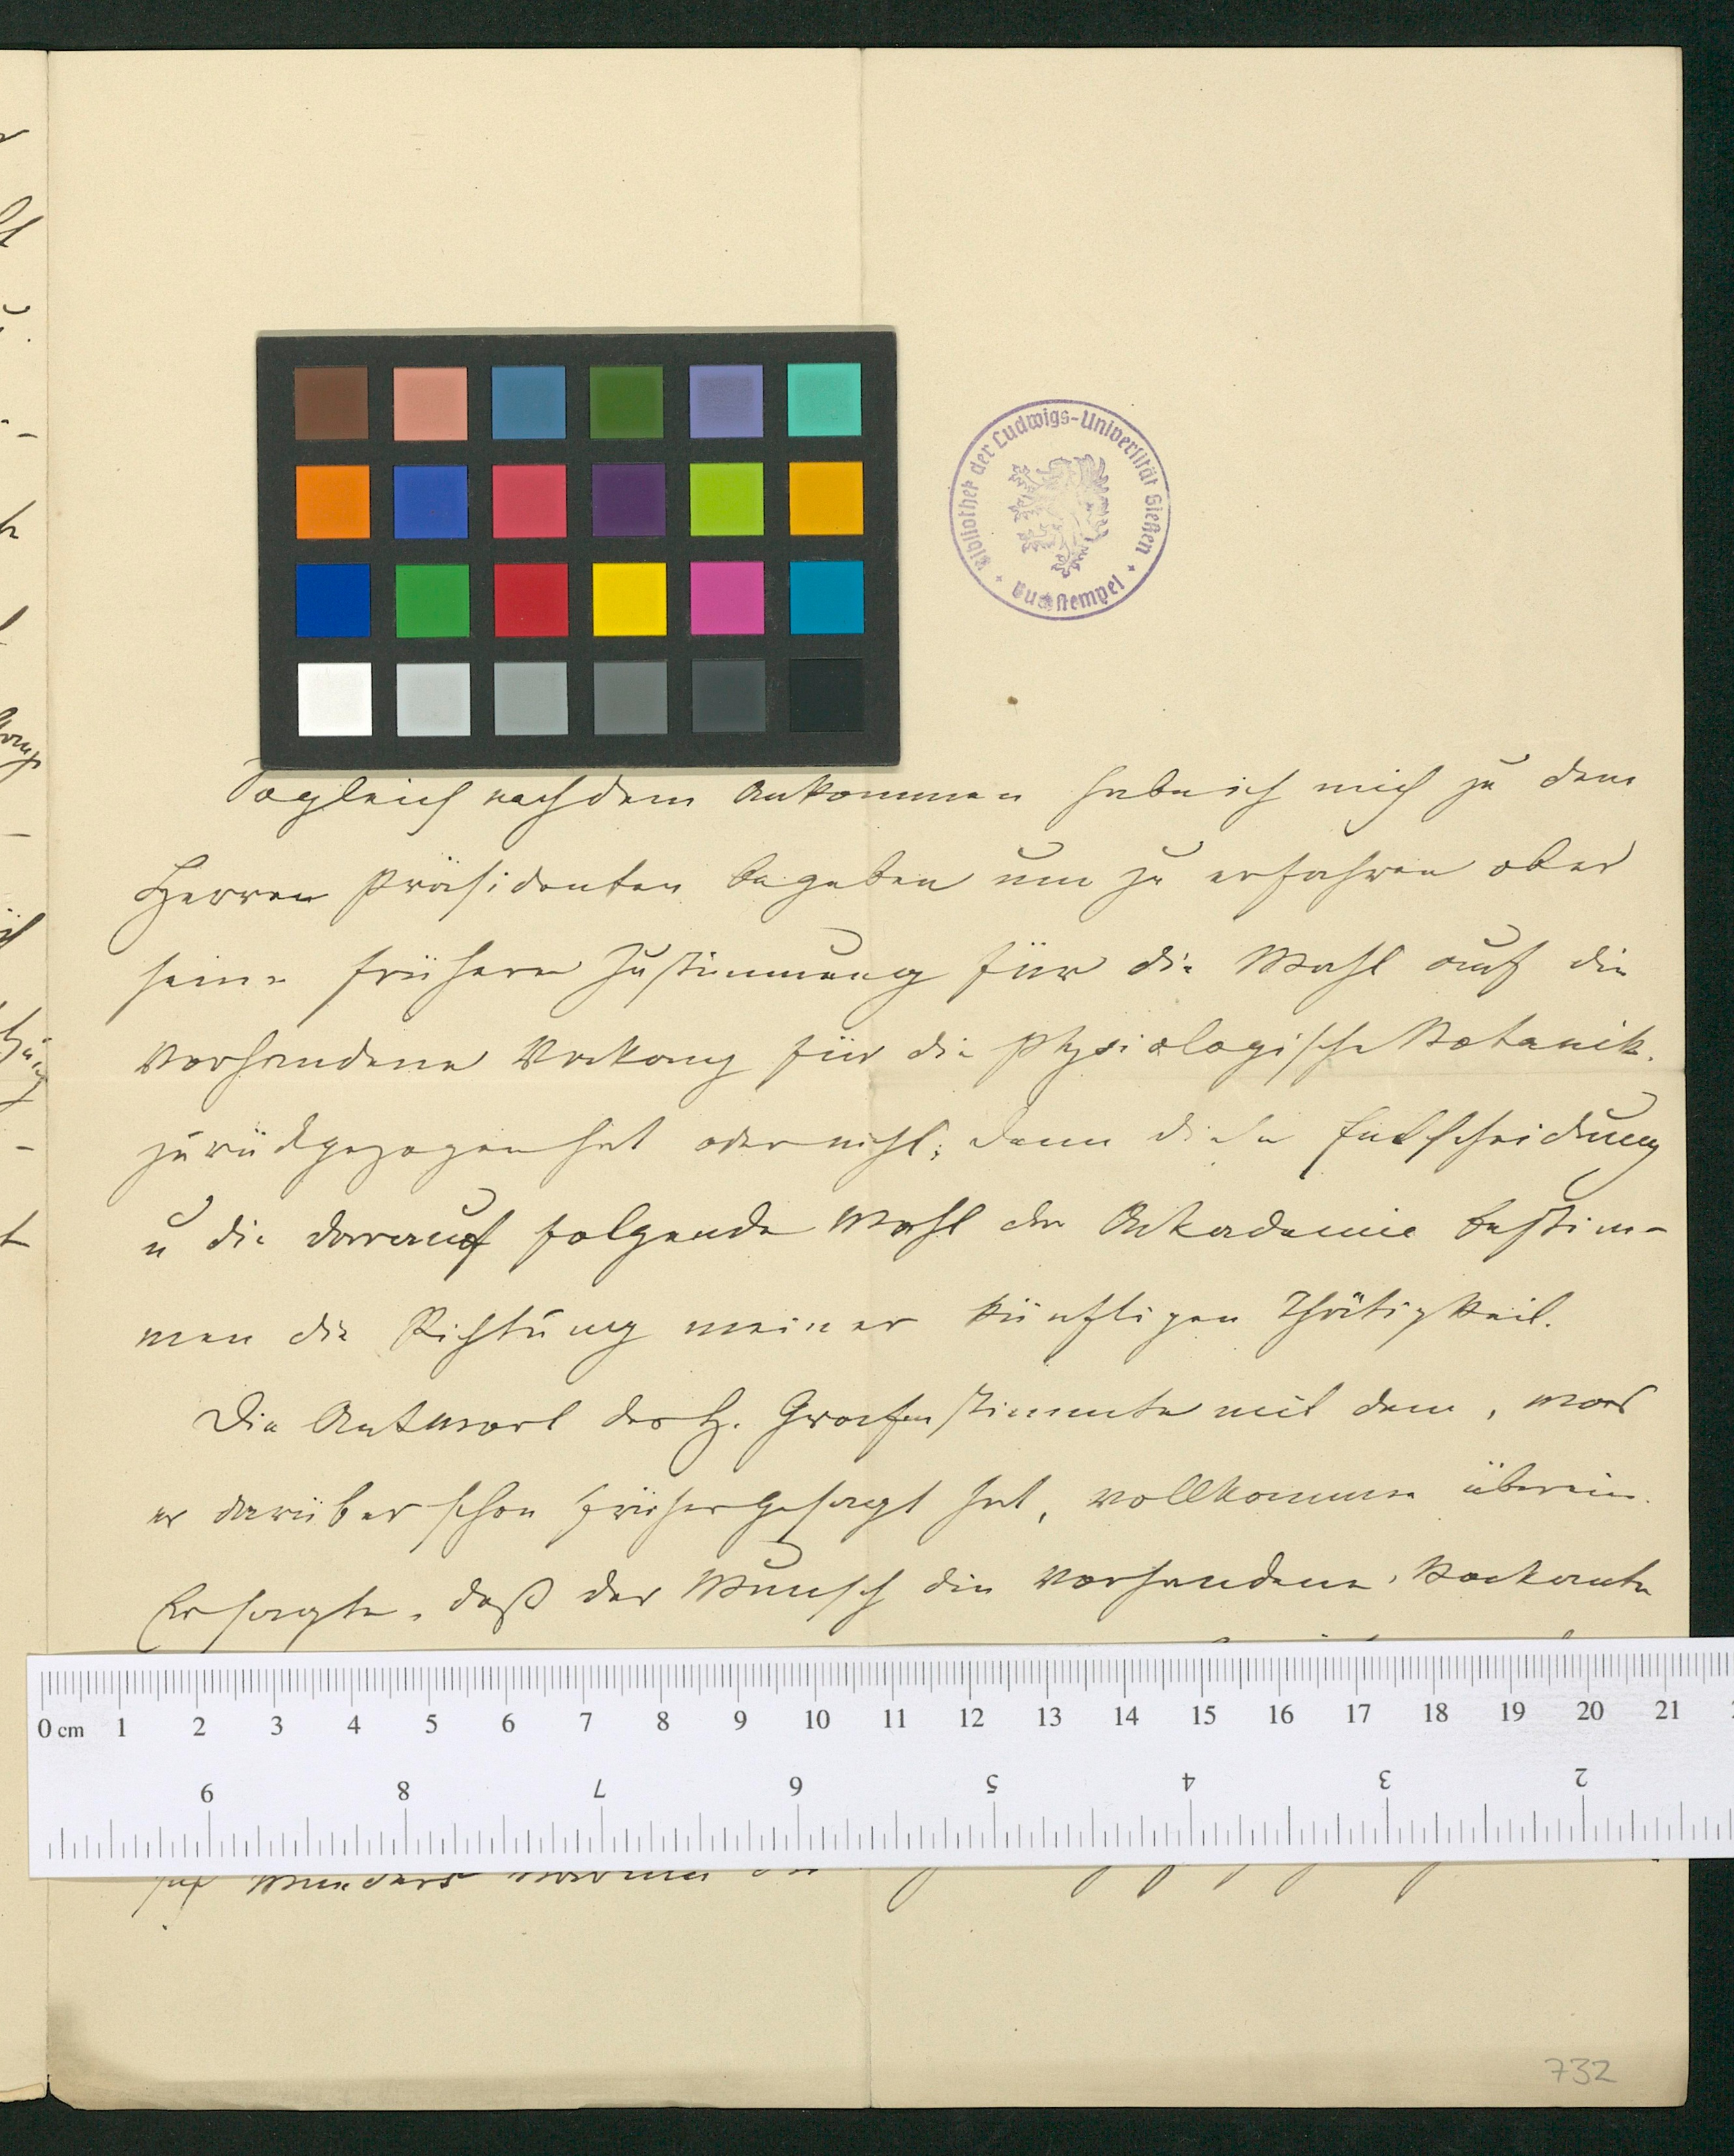 Bibliothek der Ludwigs-Universität Gießen
Buchstempel
Sogleich nach dem Ankommen habe ich mich zu dem
Herren Präsidenten begeben um zu erfahren ob er
seine frühere Zustimmung für die Wahl auf die
vorhandene Vakanz für die physiologische Botanik.
zurückgezogen hat oder nicht; denn diese Entscheidung
u die darauf folgende Wahl der Akademie bestim-
men die Richtung meiner künftigen Thätigkeit.
Die Antwort des H. Grafen stimmte mit dem, was
er darüber schon früher gesagt hat, vollkommen überein.
Er sagte, daß der Wunsch die vorhandene, Vakante
0 cm 1 2 3 4 5 6 7 8 9 10 11 12 13 14 15 16 17 18 19 20 21
9 8 7 6 5 4 3 2
732